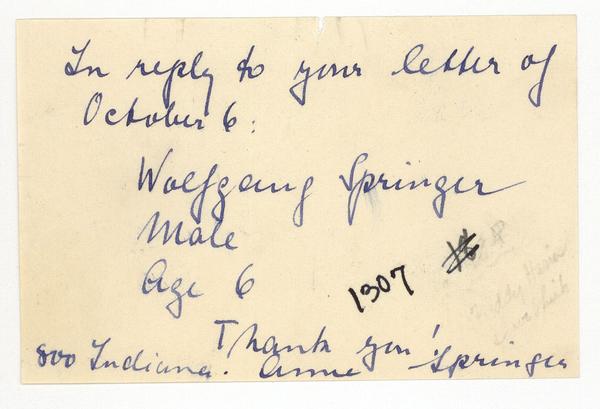 In reply to your letter of
October 6:
Wolfgang Springer
Male
Age 6
1307
Thank you!
800 Indiana. Anne Springer